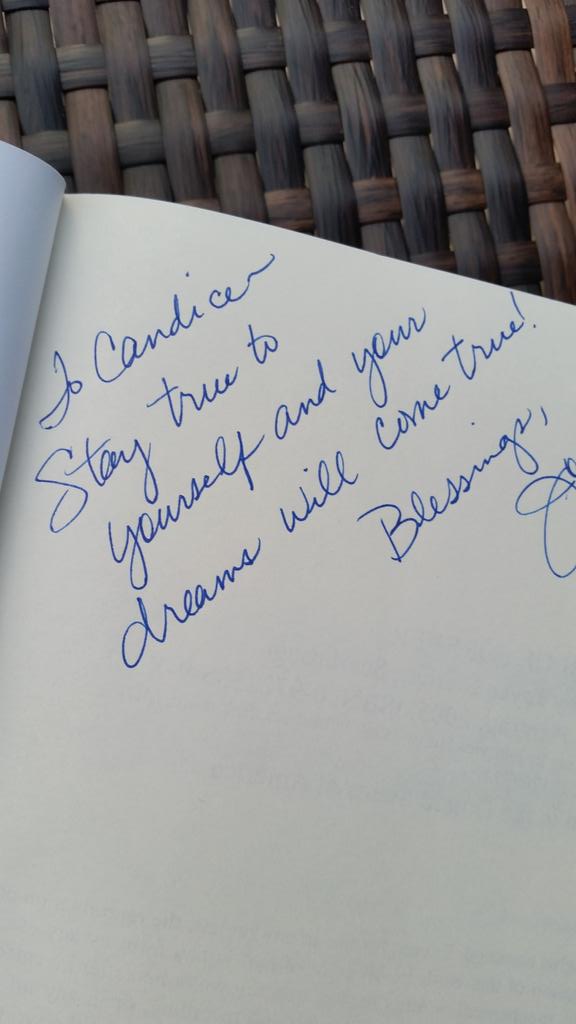 To Candice
Stay true to
yourself and your
dreams will come true!
Blessings,